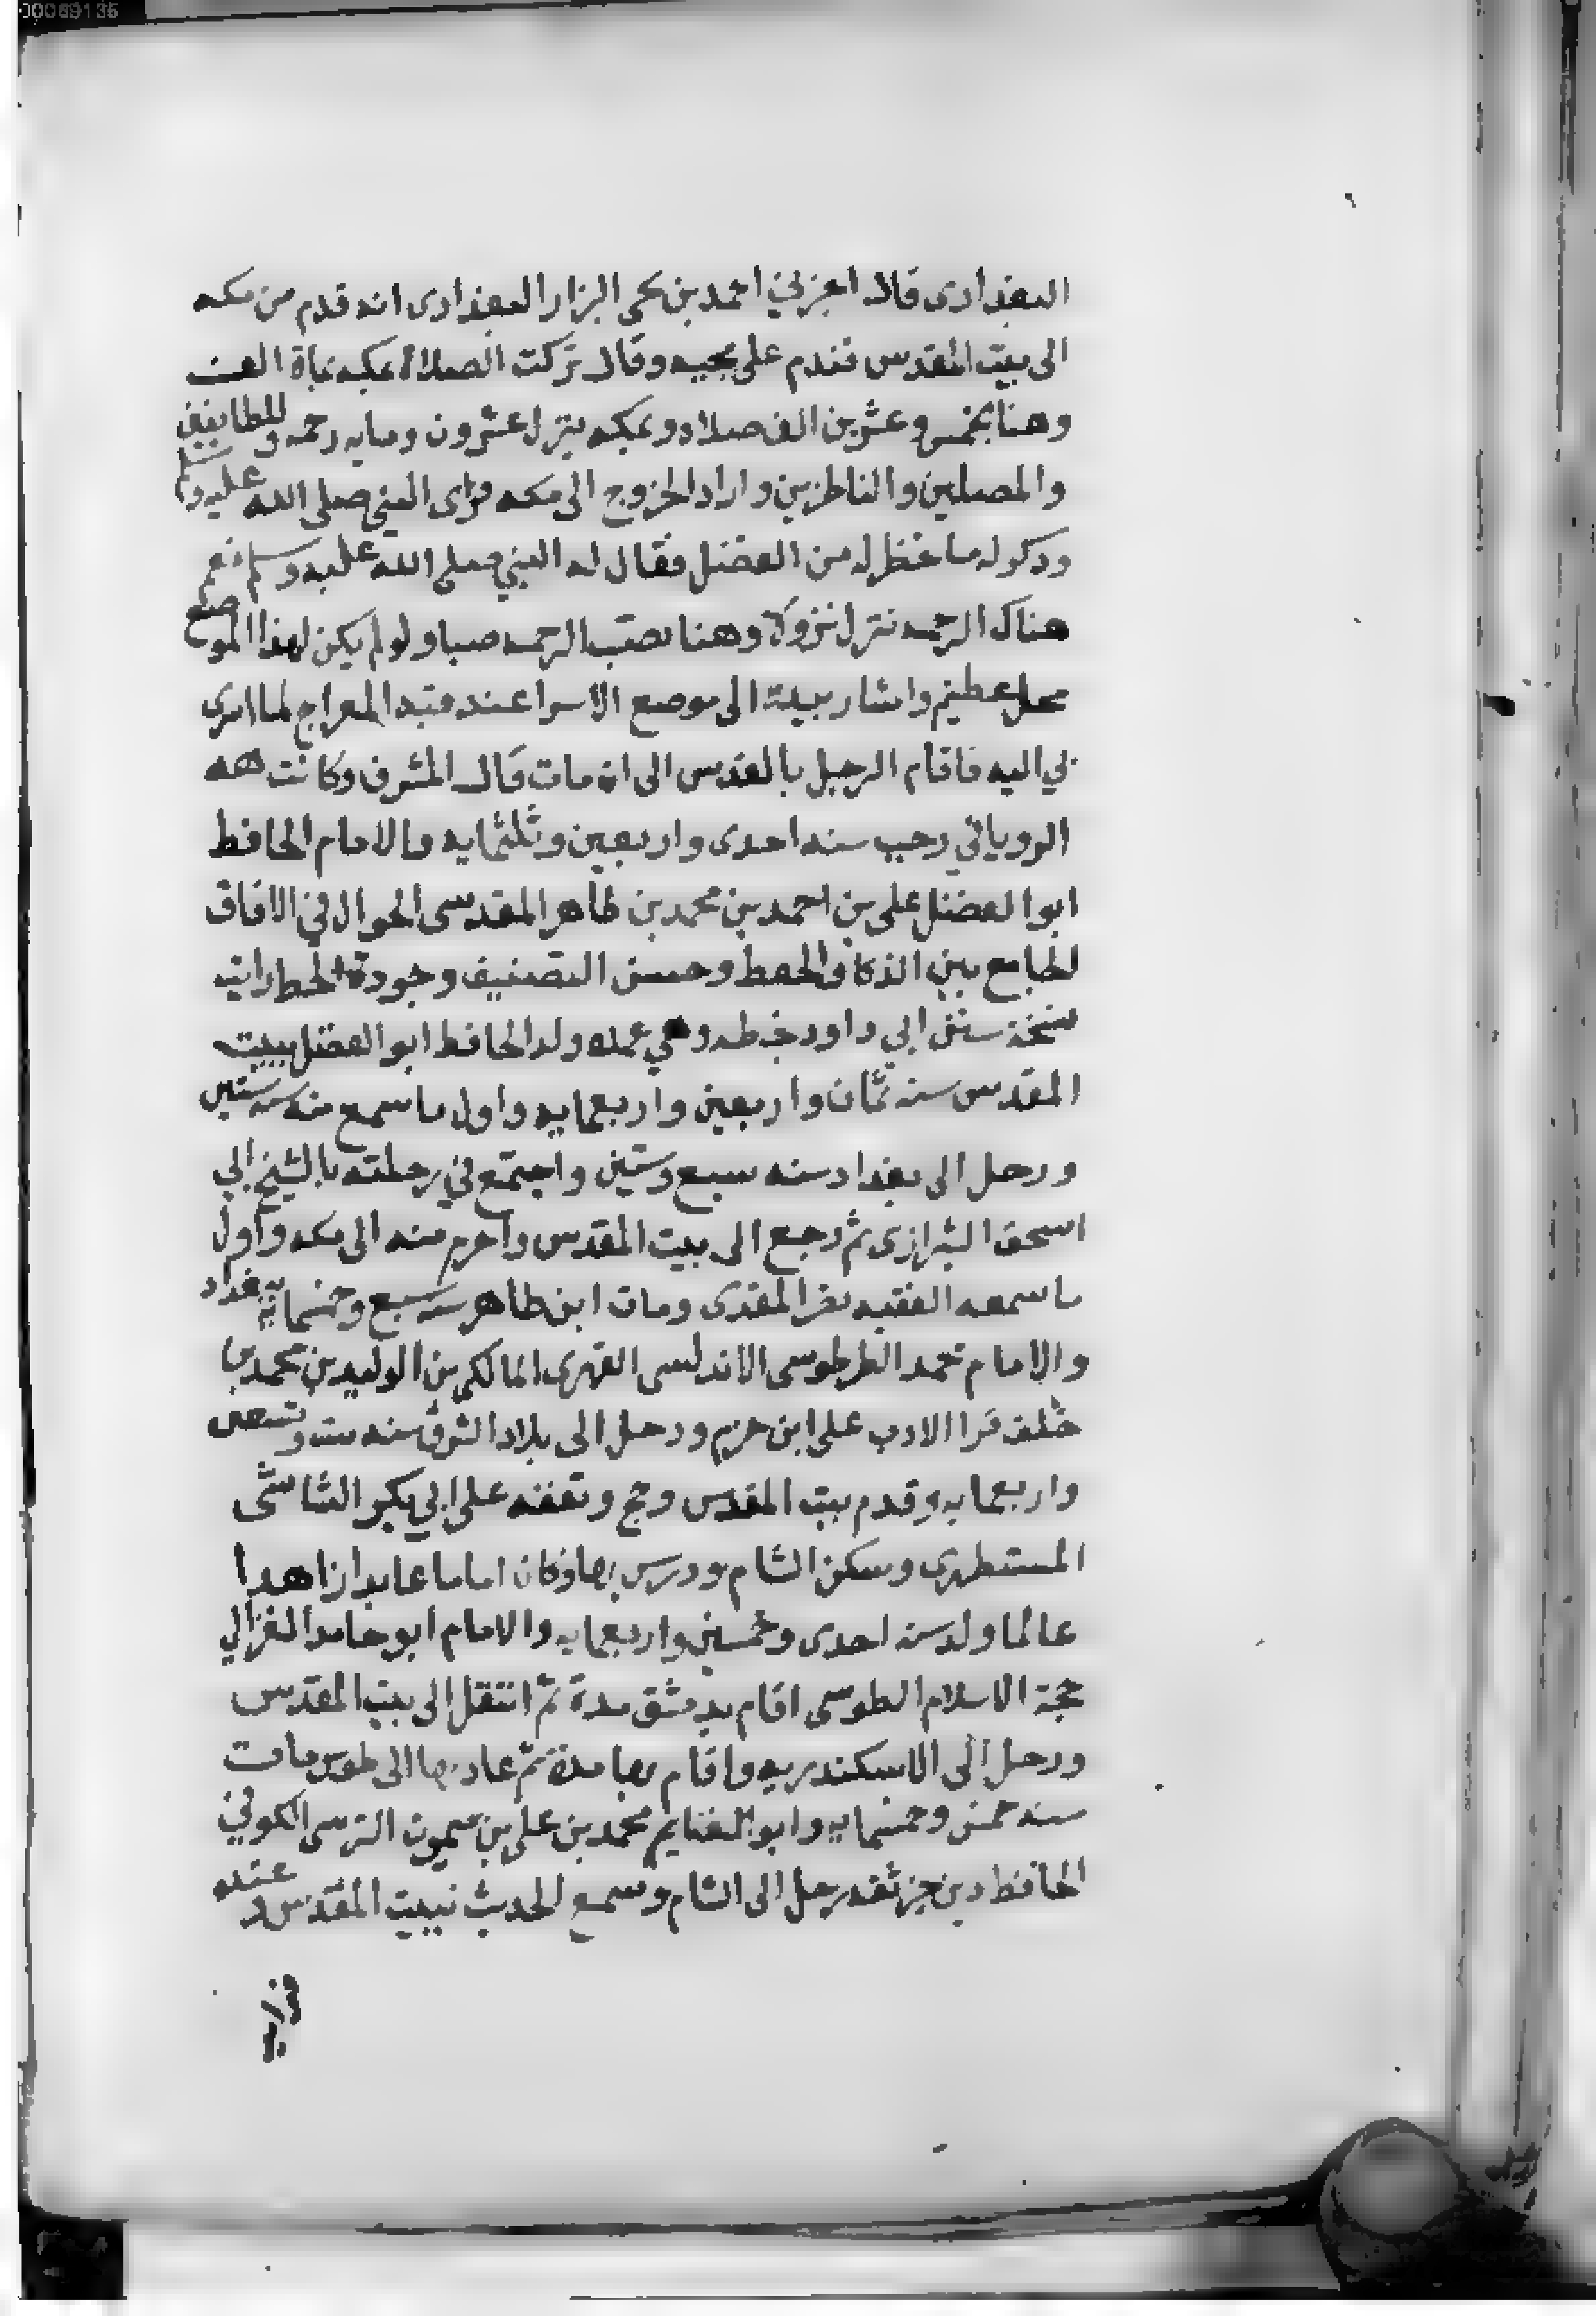 00069135
البغدادى قال اخبرني احمد بن يحى البزار البغدادى انه قدم من مكه
الى بيت المقدس فندم على مجيه وقال تركت الصلاة بمكه بماة الف
وهنا بخمس وعشرين الف صلاه وبمكه ينزل عشرون ومايه رحمه للطايفين
والمصلين والناظرين واراد الخروج الى مكه فراى النبي صلى الله عليه وسلم
وذكر له ما خطر له من الفضل فقال له النبي صلى الله عليه وسلم نعم
هناك الرحمه تنزل نزولا وهنا تصب الرحمه صبا ولو لم يكن لهذا الموضع
محل عظيم واشار بيده الى موضع الاسرا عند قبه المعراج لما اسرى
بي اليه فاقام الرجل بالقدس الى ان مات قال المشرف وكانت هه
الرويا في رجب سنه احدى واربعين وثلثمايه والامام الحافظ
ابو الفضل على بن احمد بن محمد بن طاهر المقدسى الجوال في الافاق
الجامع بين الذكا والحفظ وحسن التصنيف وجودة الخط رايت
نسخة سنن ابي داود بخطه وهي عمده ولد الحافظ ابو الفضل ببيت
المقدس سنه ثمان واربعين واربعمايه واول ما سمع منه سنه ستين
ورحل الى بغداد سنه سبع وستين واجتمع في رحلته بالشيخ ابي
اسحق الشيرازى ثم رجع الى بيت المقدس واحرم منه الى مكه واول
ما سمعه الفقيه نصر المقدى ومات ابن طاهر سنه سبع وخمسمائة ببغداد
والامام محمد الطرطوسى الاندلسى الفهرى المالكى بن الوليد بن محمد بن
خلف قرا الادب على ابن حزم ورحل الى بلاد الشرق سنه ست وتسعين
واربعمايه وقدم بيت المقدس وحج وتفقه على ابي بكر الشاشى
المستظهرى وسكن الشام ودرس بها وكان اماما عابدا زاهدا
عالما ولد سنه احدى وخمسين واربعمايه والامام ابو حامد الغزالي
حجة الاسلام الطوسى اقام بدمشق مدة ثم انتقل الى بيت المقدس
ورحل الى الاسكندريه واقام بها مدة ثم عاد بها الى طوس مات
سنه خمس وخمسمايه وابو الغنايم محمد بن على بن ميمون النرسى الكوفي
الحافظ دين خير ثقه رحل الى الشام وسمع الحديث ببيت المقدس وعنده